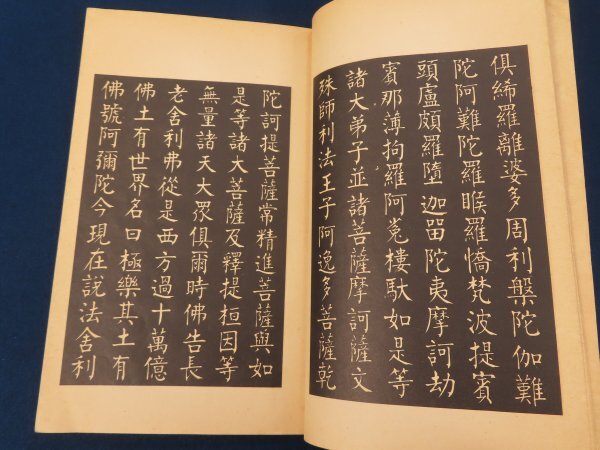 俱絺羅離婆多周利槃陀伽難
陀阿難陀羅睺羅憍梵波提賓
頭盧頗羅墮迦留陀夷摩訶劫
賓那薄拘羅阿㝹樓馱如是等
諸大弟子並諸菩薩摩訶薩文
殊師利法王子阿逸多菩薩乾
陀訶提菩薩常精進菩薩與如
是等諸大菩薩及釋提桓因等
無量諸天大眾俱爾時佛告長
老舍利弗從是西方過十萬億
佛土有世界名曰極樂其土有
佛號阿彌陀今現在說法舍利